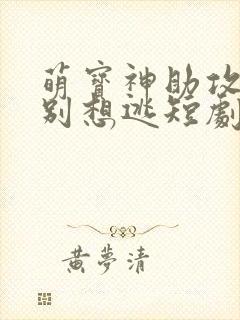 萌寶神助攻
別想逃短劇
黃夢清